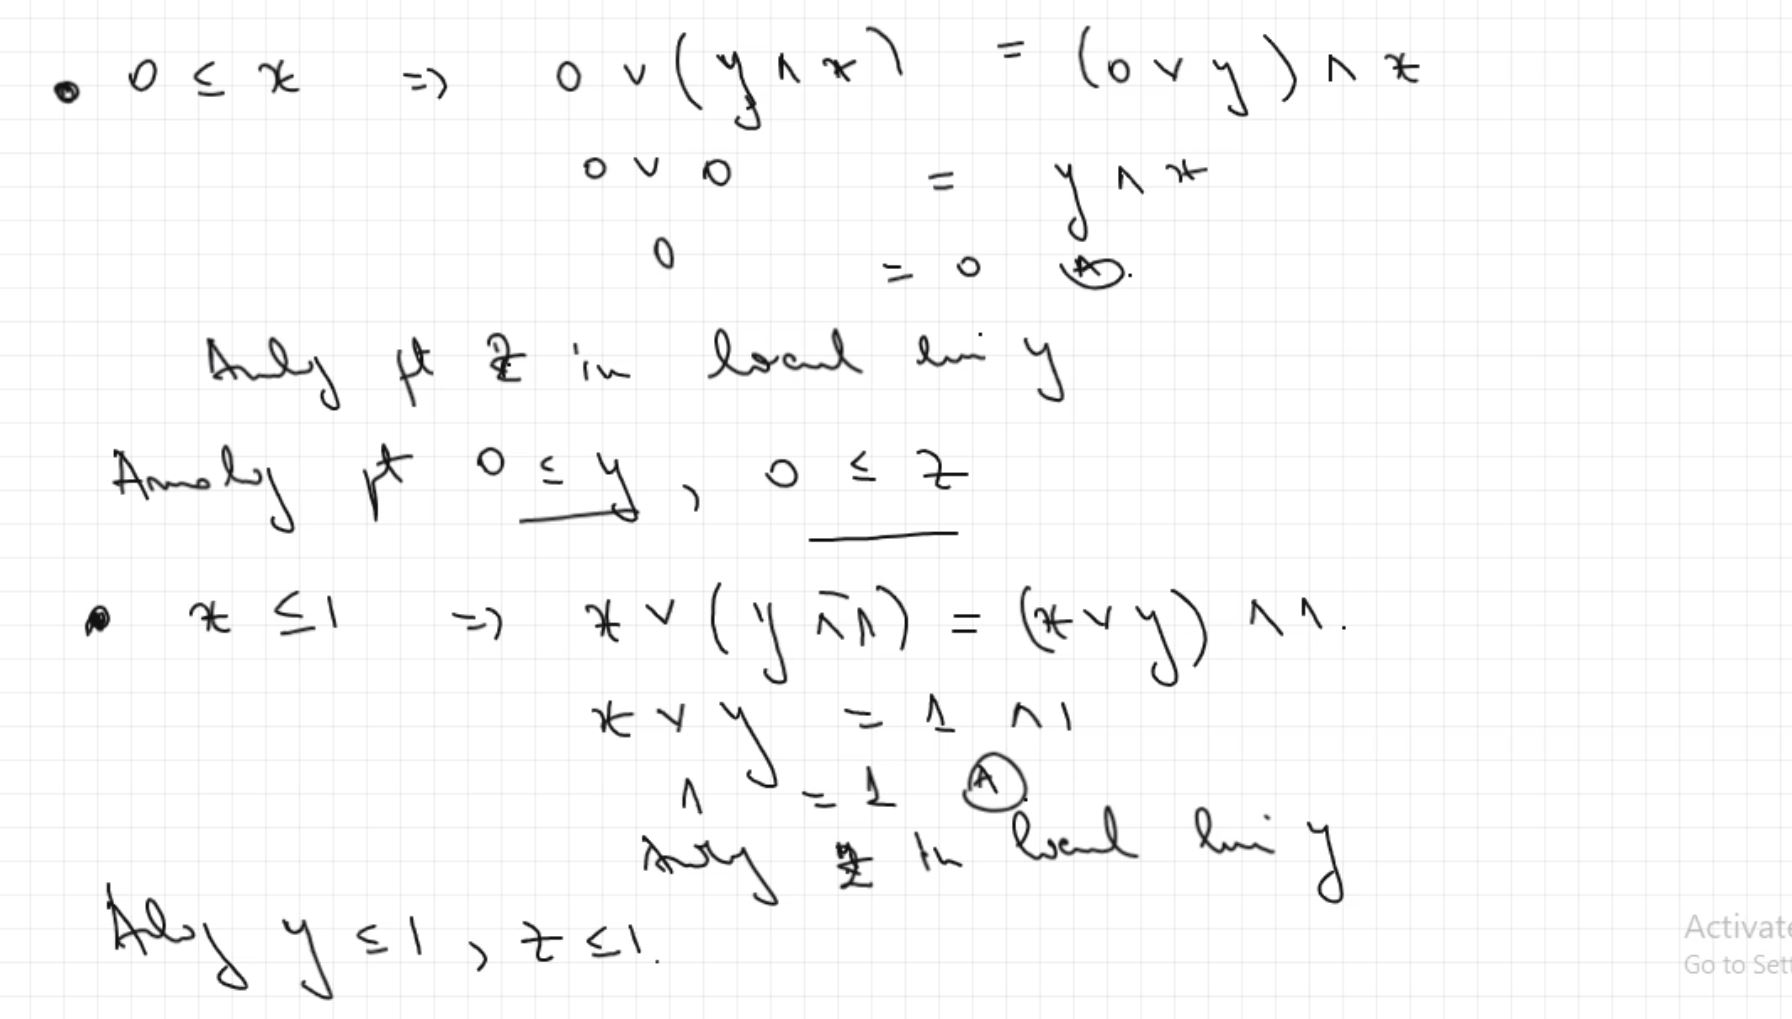 • 0 ≤ x ⇒ 0 ∨ (y ∧ x) = (0 ∨ y) ∧ x
0 ∨ 0 = y ∧ x
0 = 0 Ⓐ.
Analog pt z in locul lui y
Analog pt 0 ≤ y, 0 ≤ z
• x ≤ 1 ⇒ x ∨ (y ∧ 1) = (x ∨ y) ∧ 1.
x ∨ y = 1 ∧ 1
1 = 1 Ⓐ.
Analog z in locul lui y
Analog y ≤ 1, z ≤ 1.
Activate
Go to Sett